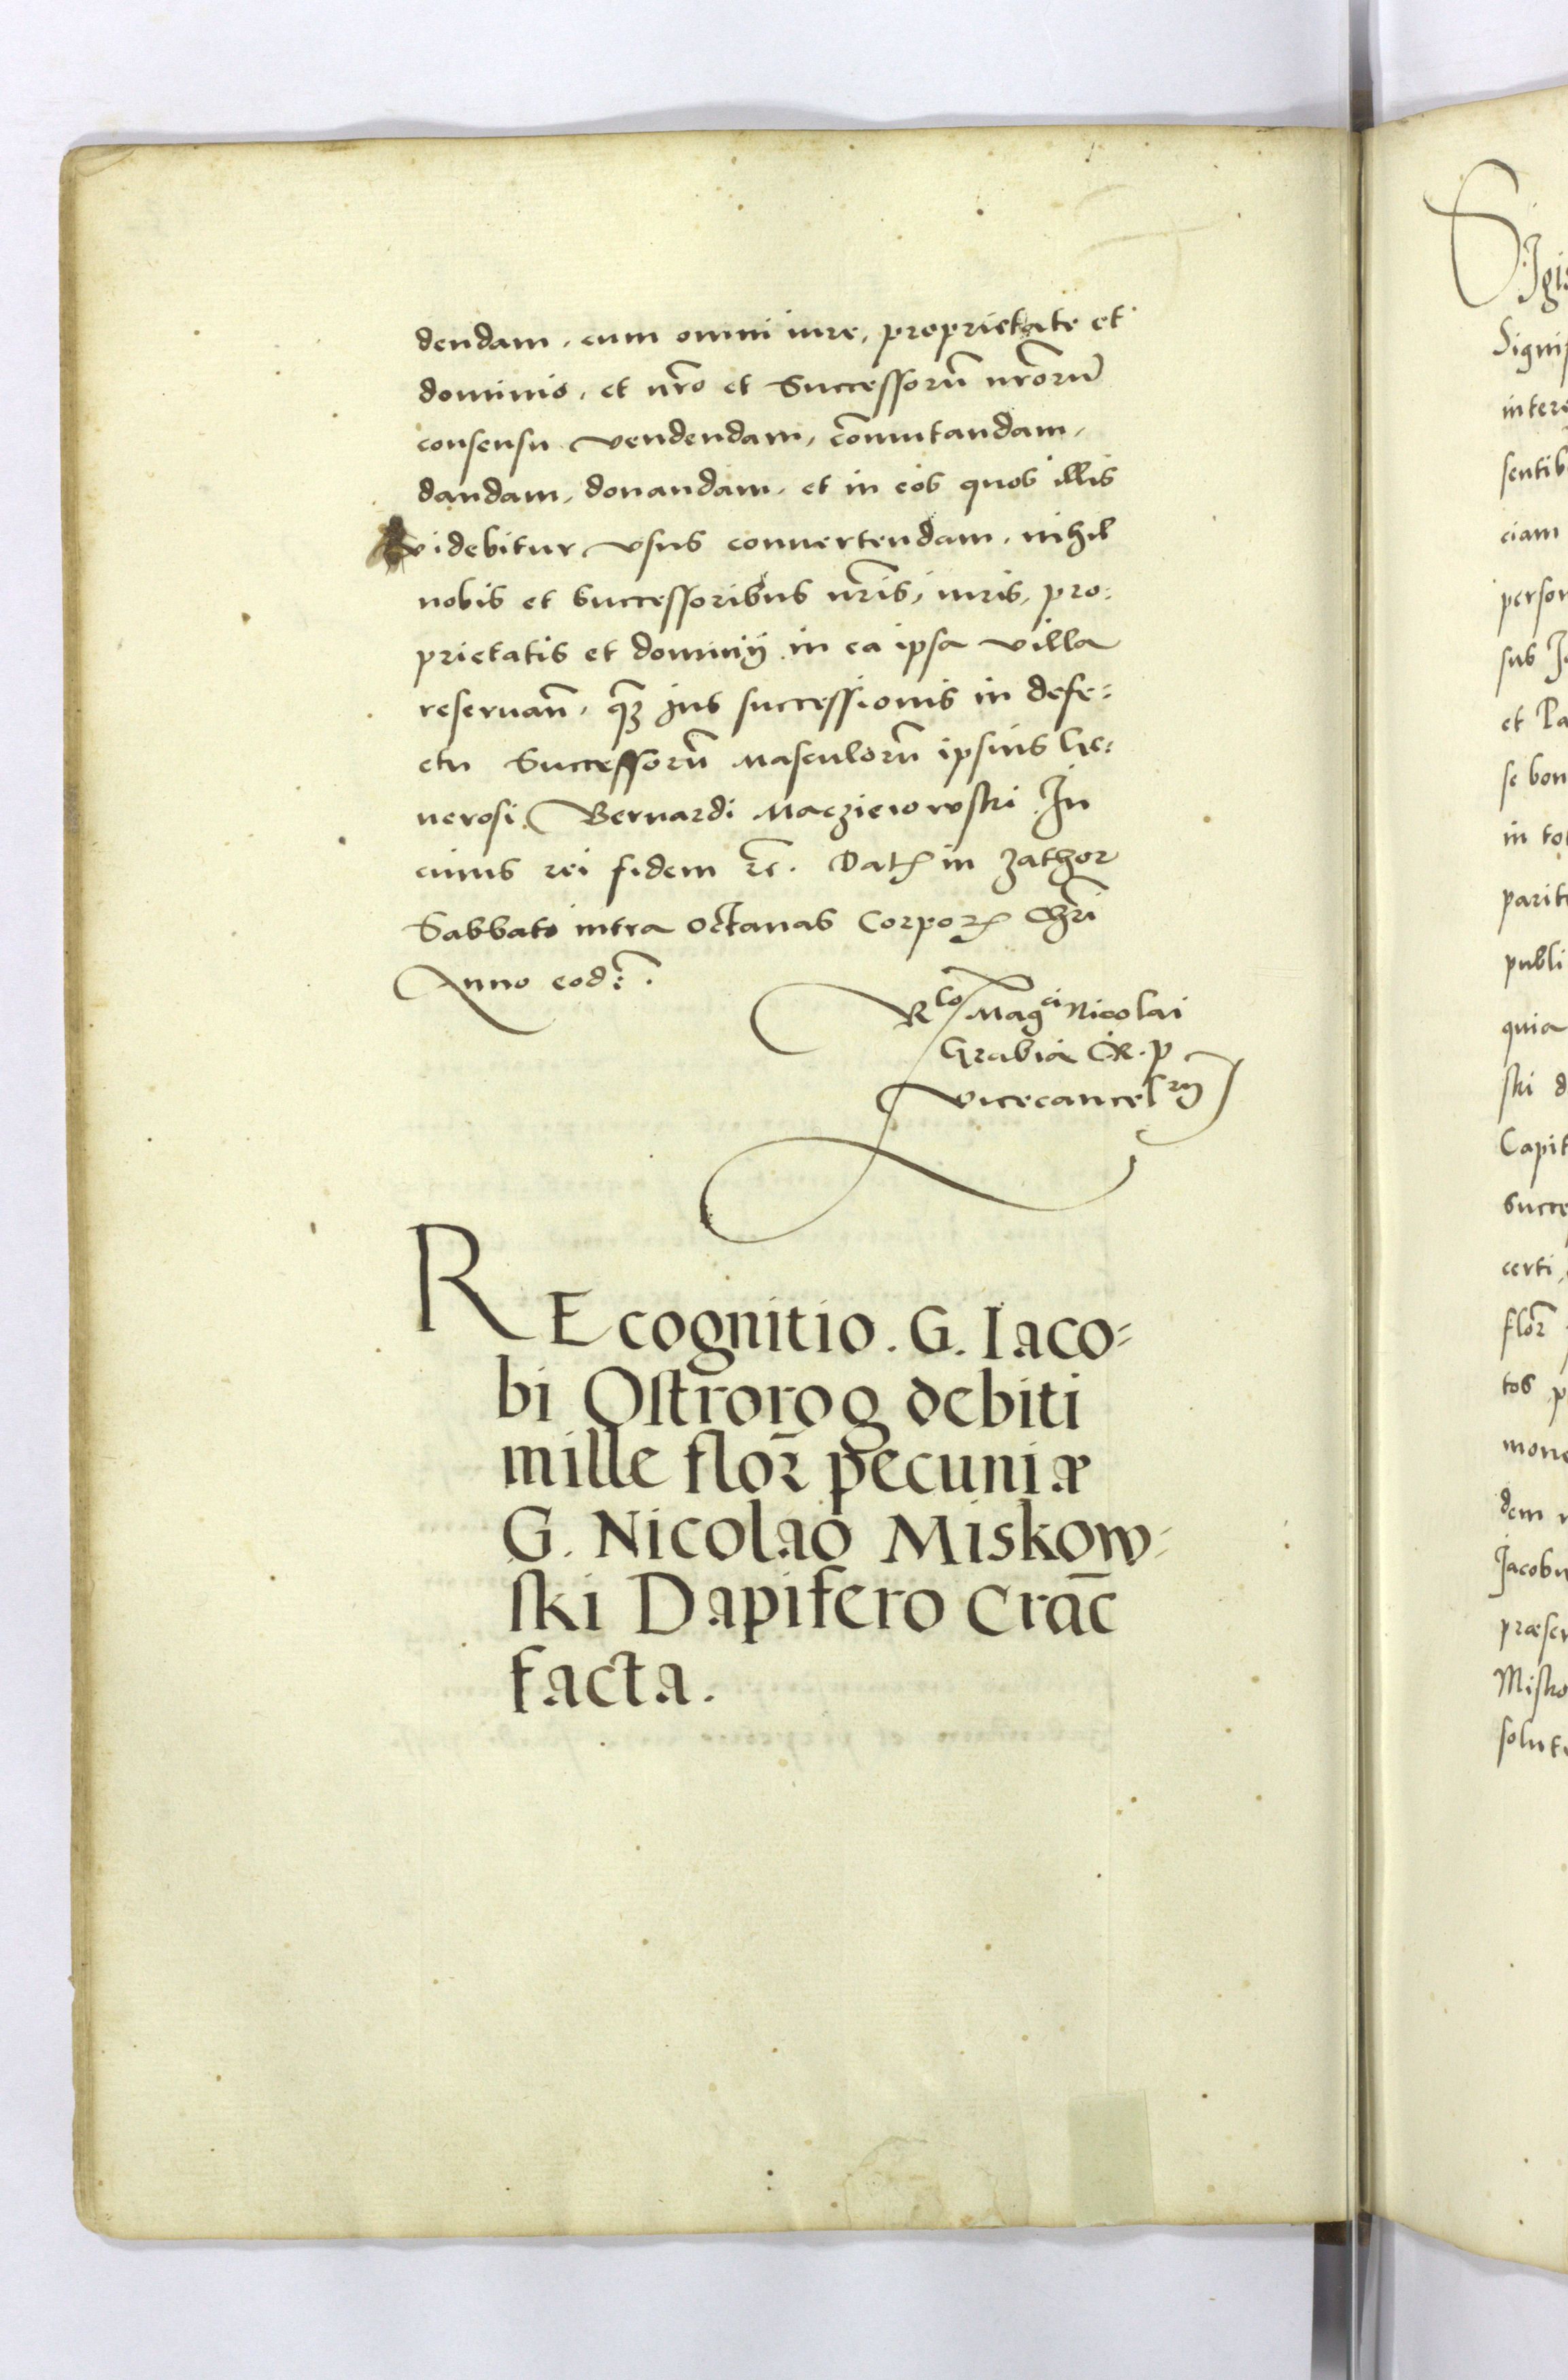 dendam, cum omni iure, proprietate et
dominio, et nr̄o et Successorū nr̄orū
consensu vendendam, cōmutandam,
dandam, donandam, et in eos quos illis
videbitur vsus conuertendam, nihil
nobis et successoribus nr̄is, iuris, pro:
prietatis et dominij in ea ipsa villa
reseruan̄, qꝫ jus successionis in defe:
ctu Successorū Masculorū ipsius Ge:
nerosi Bernardi Macziewowski. In
cuius rei fidem ꝛc̄. Datꝭ in Zathor
Sabbato intra octauas Corporꝭ Chr̄i
Anno eod:̄.
Rlo Magci Nicolai
Grabia C.R.p
vicecancelrij
REcognitio. G. Iaco=
bi Ostrorog debiti
mille flor̄ pecuniæ
G. Nicolao Miskow=
ski Dapifero Crac̄
facta.
Sigis
Signif
inter
sentib
ciam
person
sus Ja
et Pa
se bon
in tot
parit
publi
quia
ski d
Capit
succe
certi
flor̄
tos p
mone
dem
Jacobu
præsen
Misko
solut